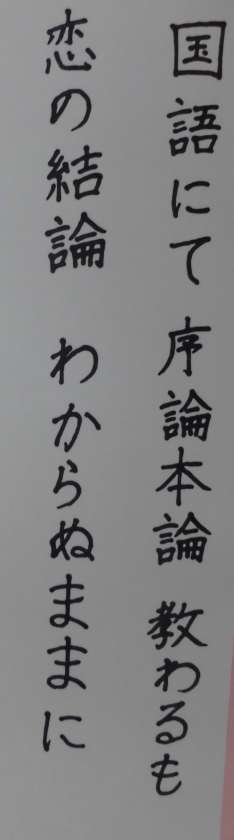 国語にて 序論本論 教わるも
恋の結論 わからぬままに